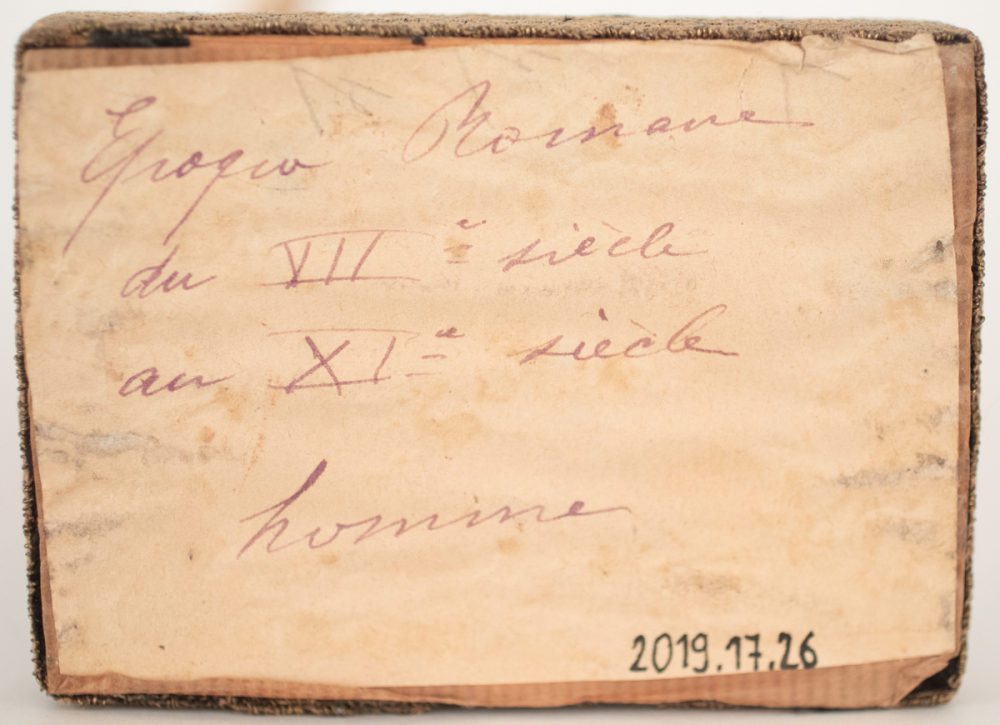 Epoque Romane
du VII e siècle
au XI e siècle
homme
2019.17.26